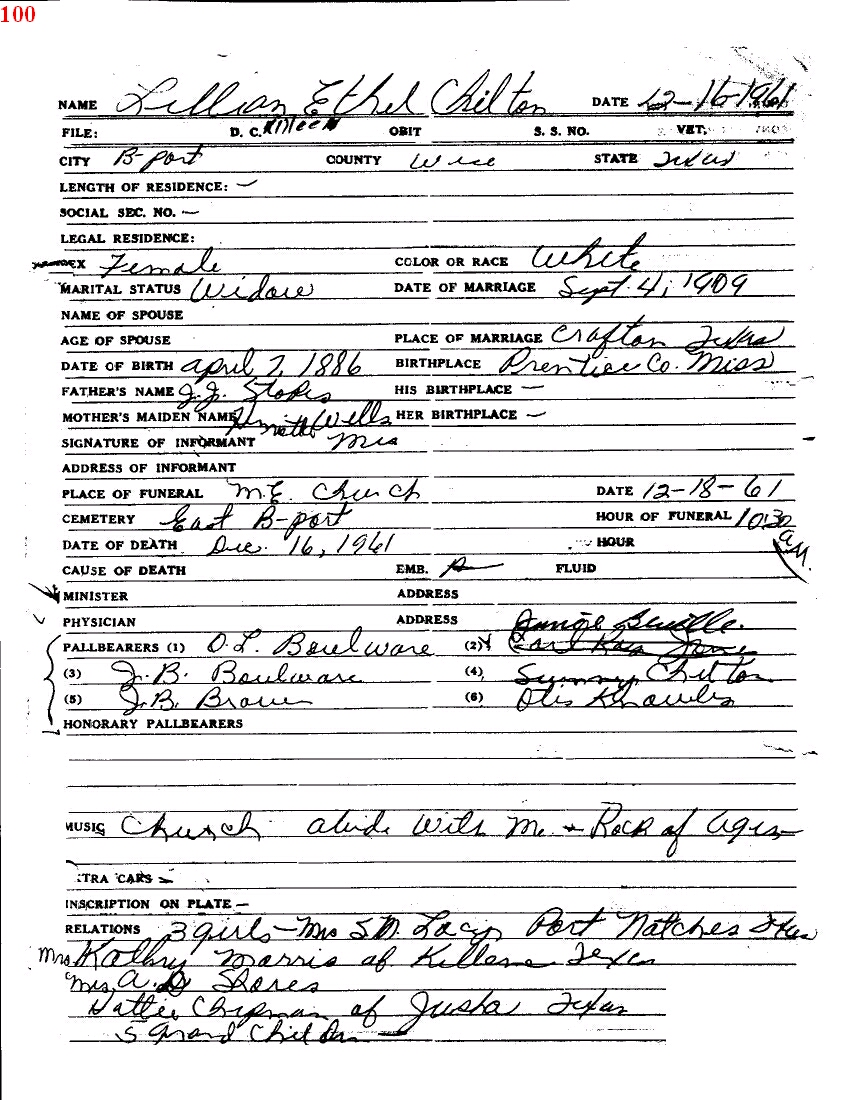 100
NAME Lillian Ethel Chilton DATE 12-16-1961
FILE: D. C. OBIT S. S. NO. VET.
CITY B-port COUNTY Wise STATE Texas
LENGTH OF RESIDENCE: —
SOCIAL SEC. NO. —
LEGAL RESIDENCE:
EX Female COLOR OR RACE White
MARITAL STATUS Widow DATE OF MARRIAGE Sept. 4, 1909
NAME OF SPOUSE
AGE OF SPOUSE PLACE OF MARRIAGE Crafton Texas
DATE OF BIRTH april 7, 1886 BIRTHPLACE Prentice Co. Miss
FATHER'S NAME J.J. Stokes HIS BIRTHPLACE —
MOTHER'S MAIDEN NAME Wells HER BIRTHPLACE —
SIGNATURE OF INFORMANT Mrs
ADDRESS OF INFORMANT
PLACE OF FUNERAL M.E. Church DATE 12-18-61
CEMETERY East B-port HOUR OF FUNERAL 10:30 a.m.
DATE OF DEATH Dec. 16, 1961 HOUR
CAUSE OF DEATH EMB. FLUID
MINISTER ADDRESS
PHYSICIAN ADDRESS
PALLBEARERS (1) O.L. Boulware (2)
(3) J.B. Boulware (4) Summy Chilton
(5) J.B. Brown (6) Otis Knowles
HONORARY PALLBEARERS
MUSIC Church abide With Me + Rock of ages
TRA CARS —
INSCRIPTION ON PLATE —
RELATIONS 3 girls - Mrs S.D. Lacy Port Natches Texas
Mrs Kathry Morris of Killene Texas
Mrs. A. Shores
Hattie Chipman of Texas
5 grand Children